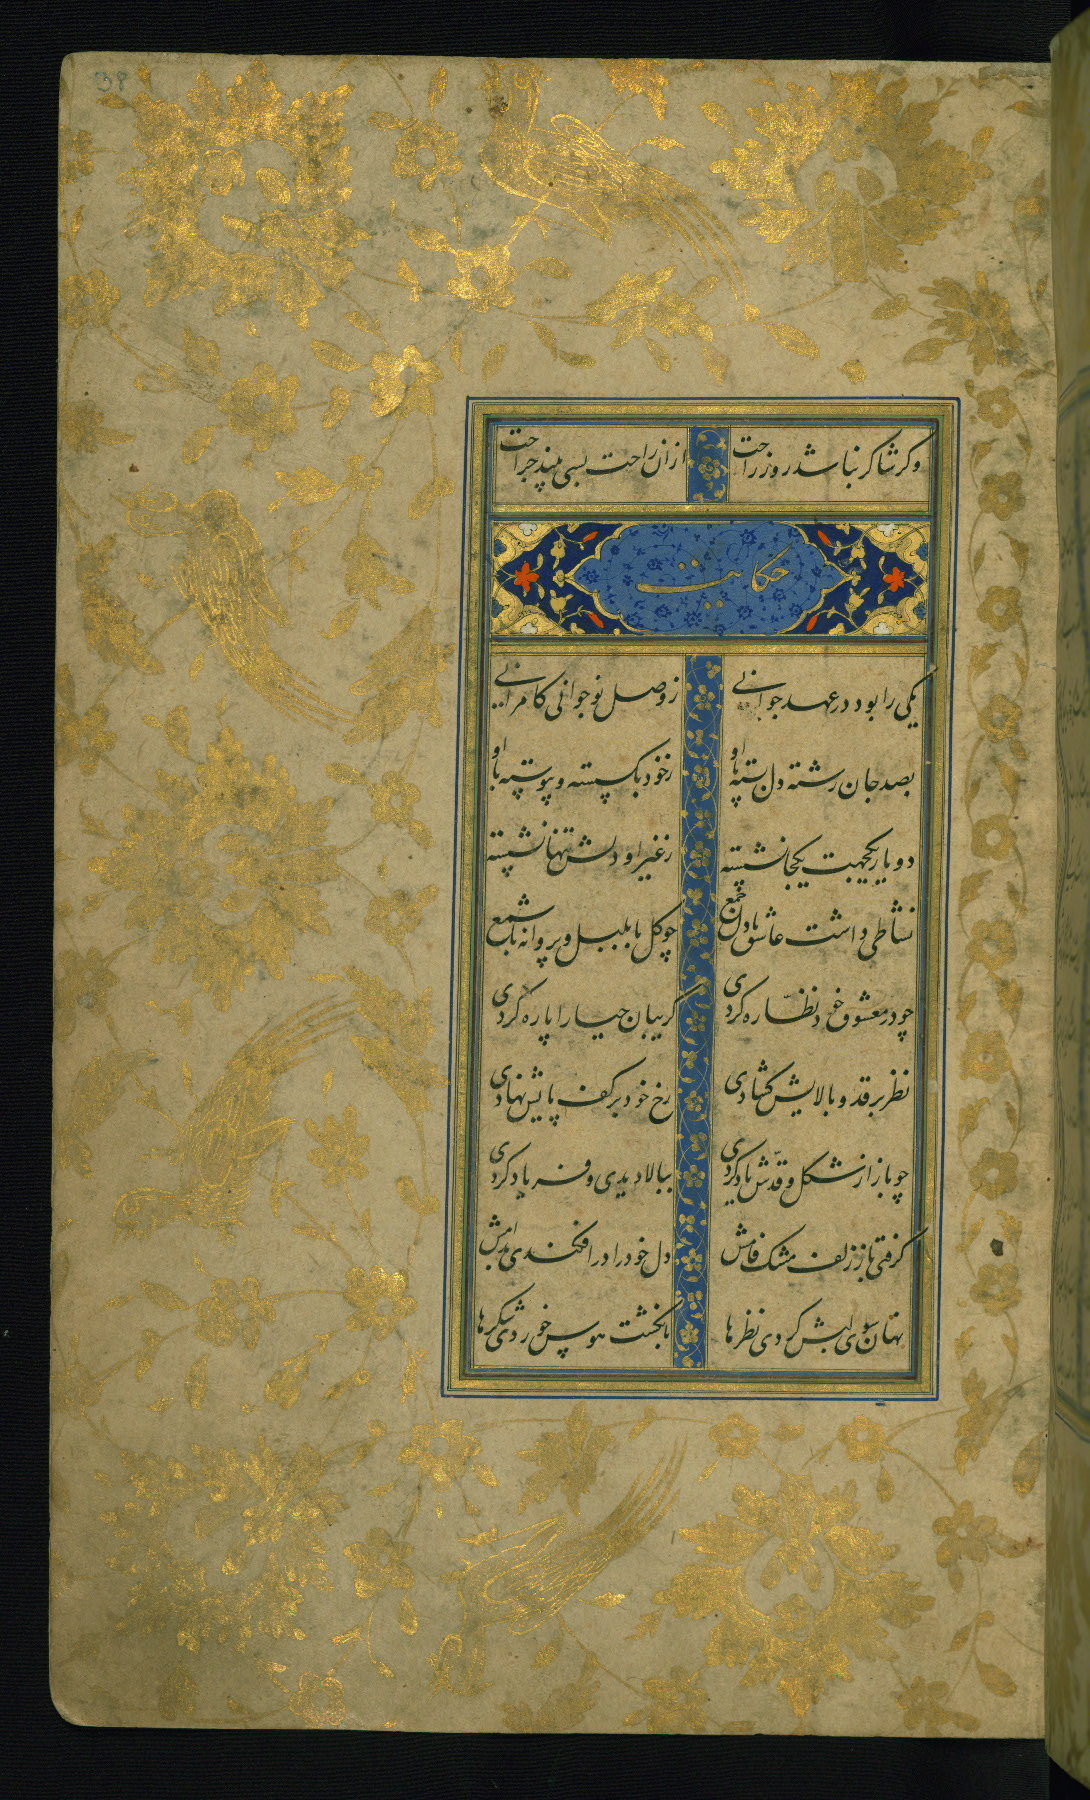 38
وکر شاکر نباشد روز راحت ازان راحت بسی بیند جراحت
حکایت
یکی را بود در عهد جوانی ز وصل نوجوانی کامرانی
بصد جان رشته دل بسته با او ز خود بکسسته و پیوسته با او
دو یار یکجهت یکجا نشسته ز غیر او دلش تنها نشسته
نشاطی داشت عاشق با دل جمع چو کل با بلبل و پروانه با شمع
چو در معشوق خود نظاره کردی کریبان حیا را پاره کردی
نظر بر قد و بالایش کشادی رخ خود بر کف پایش نهادی
چو باز از شکل و قدش یاد کردی ببالا دیدی و فریاد کردی
کرفتی تاز زلف مشک فامش دل خود را در افکندی بدامش
نهان سوی لبش کردی نظرها بانکشت هوس خوردی شکرها